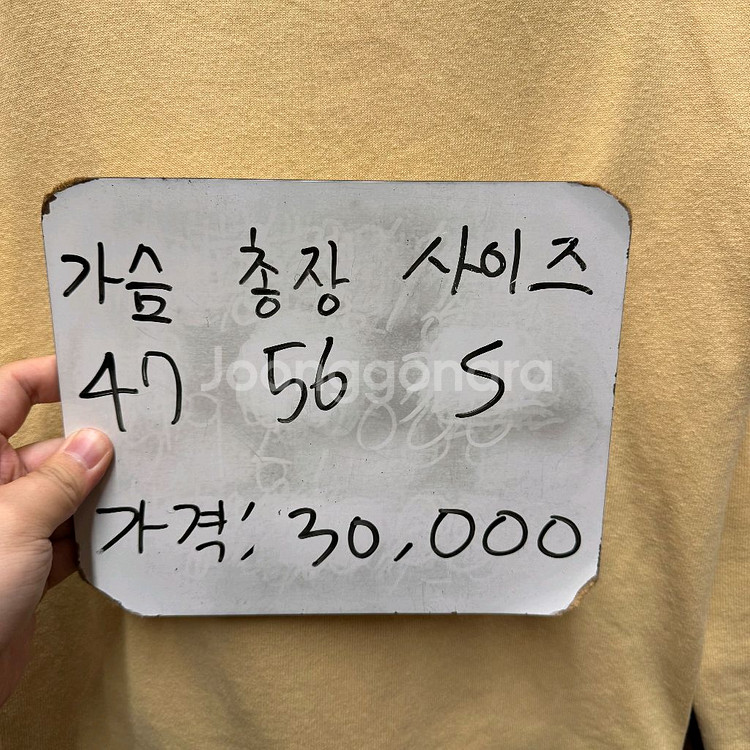 가슴 총장 사이즈
47 56 S
Joonggonara
가격: 30,000